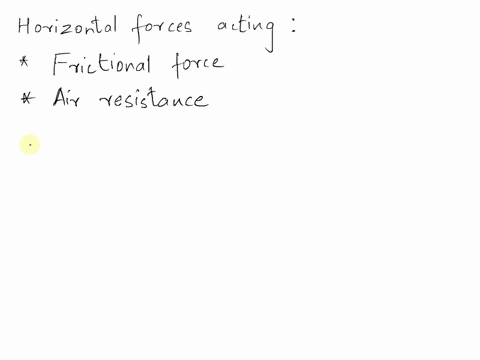 Horizontal forces acting :
* Frictional force
* Air resistance